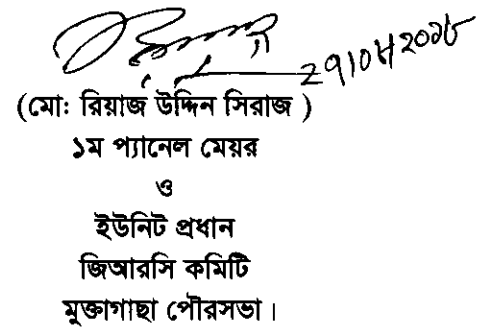 (মোঃ রিয়াজ উদ্দিন সিরাজ )
১ম প্যানেল মেয়র
ও
ইউনিট প্রধান
জিআরসি কমিটি
মুক্তাগাছা পৌরসভা।